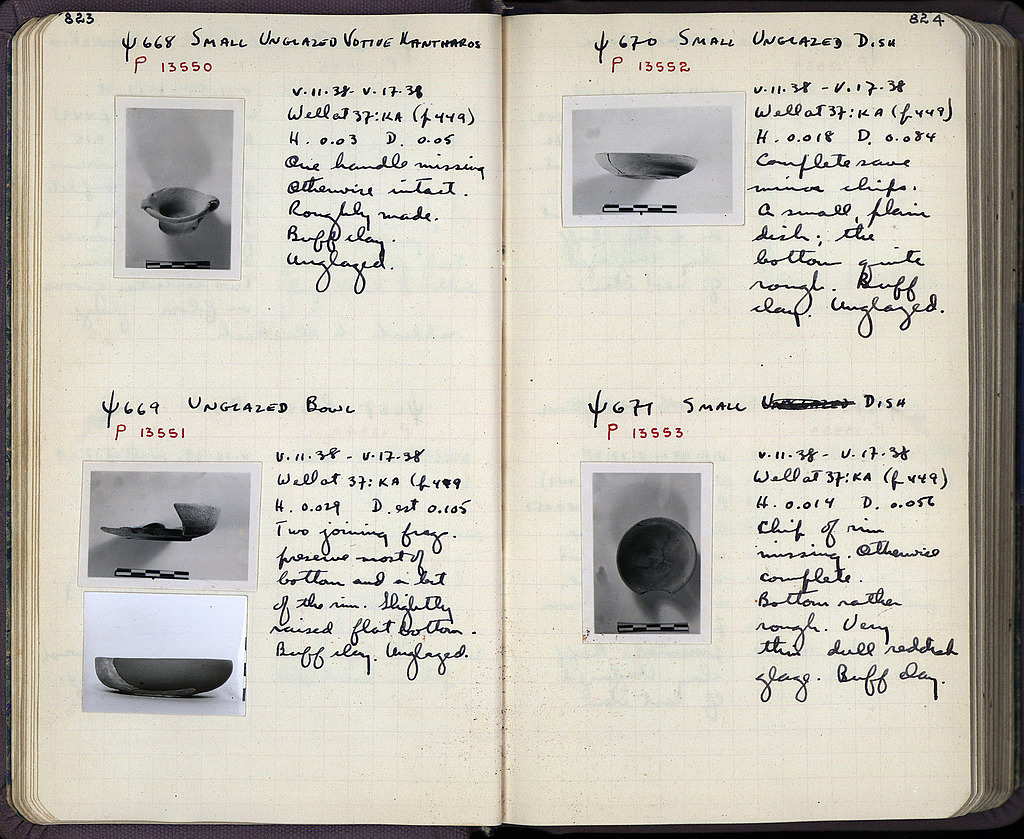 823
ψ 668 SMALL UNGLAZED VOTIVE KANTHAROS
P 13550
V.11.38 - V.17.38
Well at 37:KA (f 449)
H. 0.03 D. 0.05
One handle missing
otherwise intact.
Roughly made.
Buff clay.
Unglazed.
ψ 669 UNGLAZED BOWL
P 13551
V.11.38 - V.17.38
Well at 37:KA (f 449
H. 0.029 D. est 0.105
Two joining frag.
preserve most of
bottom and a bit
of the rim. Slightly
raised flat bottom.
Buff clay. Unglazed.
824
ψ 670 SMALL UNGLAZED DISH
P 13552
V.11.38 - V.17.38
Well at 37:KA (f 449)
H. 0.018 D. 0.084
Complete save
minor chips.
A small, plain
dish; the
bottom quite
rough. Buff
clay. Unglazed.
ψ 671 SMALL UNGLAZED DISH
P 13553
V.11.38 - V.17.38
Well at 37:KA (f 449)
H. 0.014 D. 0.056
Chip of rim
missing. Otherwise
complete.
Bottom rather
rough. Very
thin dull reddish
glaze. Buff clay.